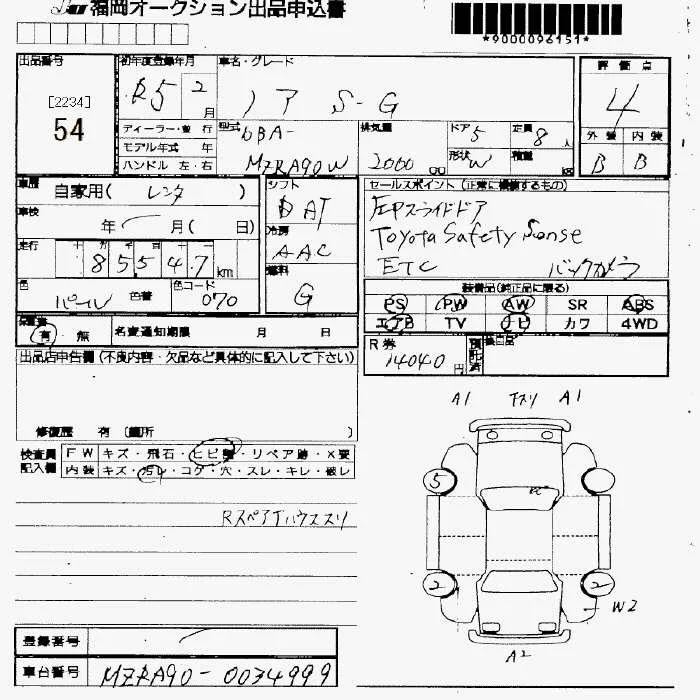 福岡オークション出品申込書
*9000096151*
出品番号
[2234]
54
初年度登録年月
R5 2月
車名・グレード
ノア S-G
評価点
4
外装 内装
B B
ディーラー・並行
モデル年式 年
ハンドル 左・右
型式
6BA-
MZRA90W
排気量
2000 cc
ドア 5
形状 W
定員 8人
積載 kg
車歴
自家用( レンタ )
車検
年 月( 日)
走行
85547km
色
パール
色替
色コード
070
シフト
DAT
冷房
AAC
燃料
G
セールスポイント(正常に機能するもの)
左Pスライドドア
Toyota Safety Sense
ETC バックカメラ
装備品(純正品に限る)
PS PW AW SR ABS
エアB TV ナビ カワ 4WD
保証書
有・無
名変通知期限 月 日
R券
14040円
預託済
後日品
出品店申告欄(不良内容・欠品など具体的に記入して下さい)
修復歴 有(箇所 )
検査員記入欄
FW キズ・飛石・ヒビ・リペア跡・X要
内装 キズ・汚レ・コゲ・穴・スレ・キレ・破レ
RスペアTハウススリ
A1 下スリ A1
5
2 2
W2
A2
登録番号
車台番号
MZRA90-0034999